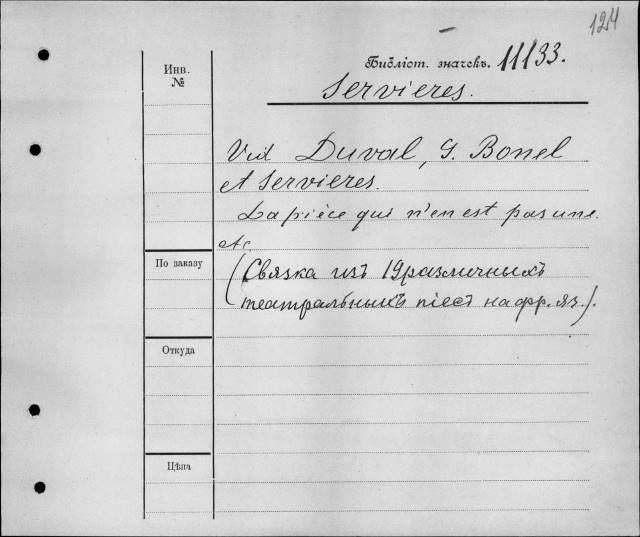 124
Библіот. значекъ. 11133.
Servieres.
Инв.
№
Vid Duval, G. Bonel
et Servieres.
La pièce qui n'en est pas une.
etc.
(Связка изъ 19 различныхъ
театральныхъ піесъ на фр. яз.).
По заказу
Откуда
Цѣна